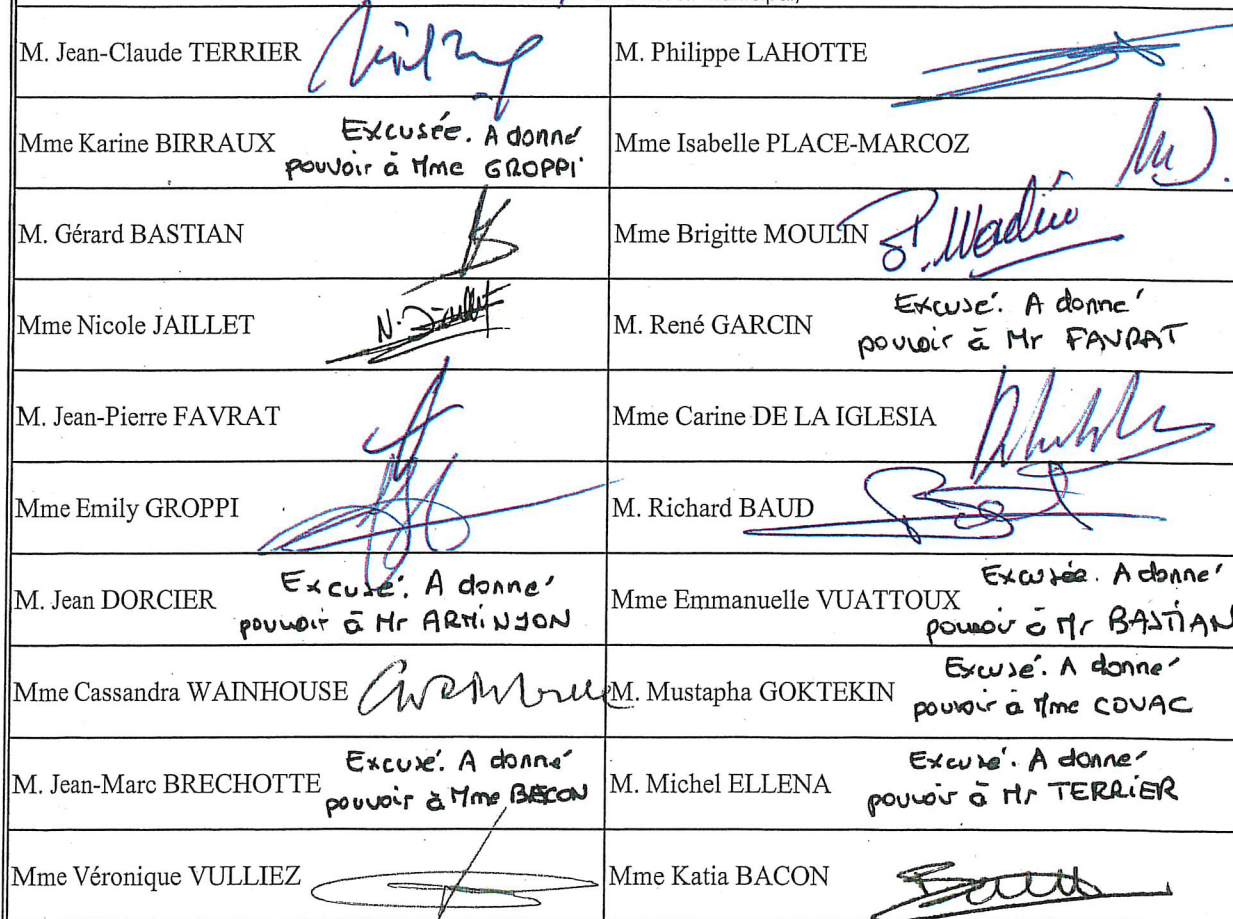 M. Jean-Claude TERRIER
M. Philippe LAHOTTE
Mme Karine BIRRAUX
Excusée. A donné
pouvoir à Mme GROPPI
Mme Isabelle PLACE-MARCOZ
M. Gérard BASTIAN
Mme Brigitte MOULIN
Mme Nicole JAILLET
N. Jaillet
M. René GARCIN
Excusé. A donné
pouvoir à Mr FAVRAT
M. Jean-Pierre FAVRAT
Mme Carine DE LA IGLESIA
Mme Emily GROPPI
M. Richard BAUD
M. Jean DORCIER
Excusé. A donné
pouvoir à Mr ARMINJON
Mme Emmanuelle VUATTOUX
Excusée. A donné
pouvoir à Mr BASTIAN
Mme Cassandra WAINHOUSE
M. Mustapha GOKTEKIN
Excusé. A donné
pouvoir à Mme COVAC
M. Jean-Marc BRECHOTTE
Excusé. A donné
pouvoir à Mme BACON
M. Michel ELLENA
Excusé. A donné
pouvoir à Mr TERRIER
Mme Véronique VULLIEZ
Mme Katia BACON